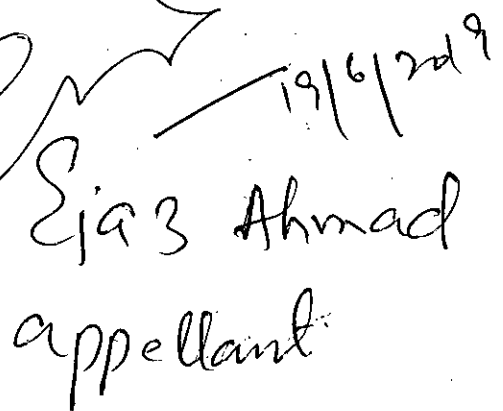 19/6/2019
Ejaz Ahmad
appellant